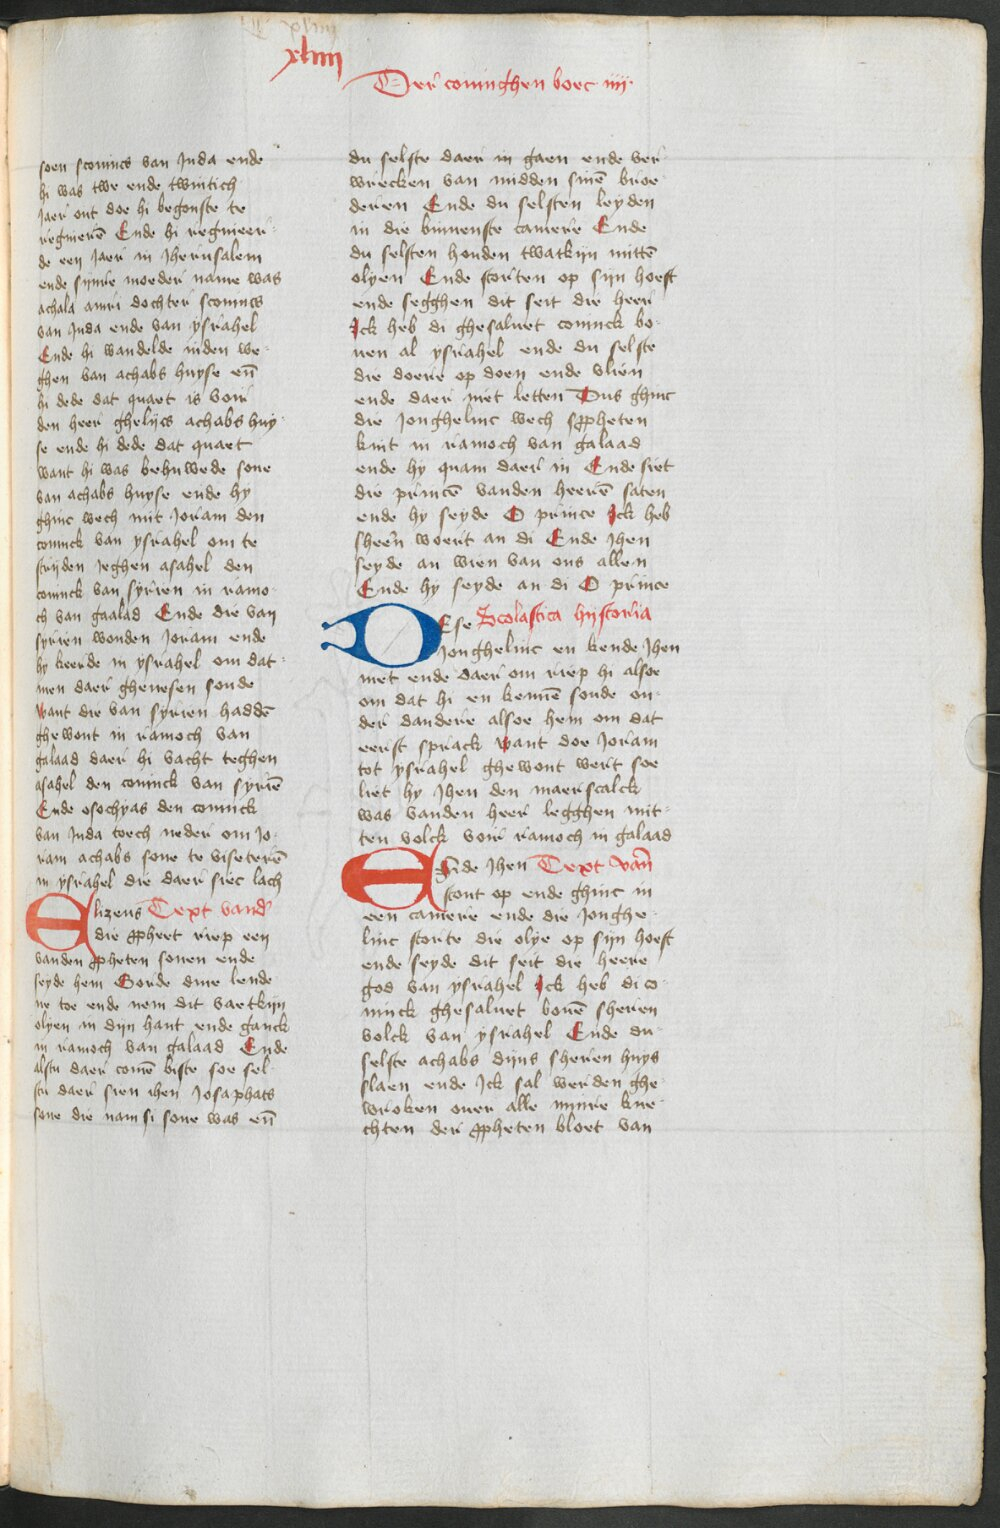 xliiii
Der coninghen boec iiij
soen sconincs van Juda ende
hi was twe ende twintich
Jaer out doe hi begonste te
regnierē Ende hi regnieer
de een Jaer in Jherusalem
ende sijnre moeder name was
achala amri dochter sconincs
van Juda ende van ysrahel
Ende hi wandelde inden we
ghen van achabs huyse eñ
hi dede dat quaet is voir
den heer ghelijcs achabs huy
se ende hi dede dat quaet
want hi was behuwede sone
van achabs huyse ende hy
ghinc wech mit Joram den
coninck van ysrahel om te
strijden Jeghen asahel den
coninck van syrien in ramo
ch van gaalad Ende die van
syrien wonden Joram ende
hy keerde in ysrahel om dat
men daer ghenesen soude
want die van syrien haddē
ghewont in ramoch van
galaad daer hi vacht teghen
asahel den coninck van syriē
Ende osochyas den coninck
van Juda toech neder om Jo
ram achabs sone te viseterē
in ysrahel die daer siec lach
Elizeus Text vand
die ꝓpheet riep een
vanden ꝓpheten sonen ende
seyde hem Gorde dine lende
ne toe ende nem dit vaetkijn
olyen in dijn hant ende ganck
in ramoch van galaad Ende
alstu daer comē biste soe sel
stu daer sien ihen Josaphats
sone die namsi sone was eñ
du selste daer in gaen ende ver
wrecken van midden sinē broe
deren Ende du selsten leyden
in die binnenste camere Ende
du selsten houden twatkijn mittē
olyen Ende storten op sijn hoeft
ende segghen dit seit die heer
Ick heb di ghesaluet coninck bo
uen al ysrahel ende du selste
die doere op doen ende vlien
ende daer niet letten Dus ghinc
die Jonghelinc wech sꝓpheten
knit in ramoch van galaad
ende hy quam daer in Ende siet
die princē vanden heerē saten
ende hy seyde O prince Ick heb
sheeñ woert an di Ende Jhen
seyde an wien van ons allen
Ende hy seyde an di O prince
DEse Scolastica hystoria
Jonghelinc en kende Jhen
niet ende daer om riep hi alsoe
om dat hi en kennē soude on
der dandere alsoe hem om dat
eerst sprack want doe Joram
tot ysrahel ghewont wert soe
liet hy Jhen den maerscalck
was vanden heer legghen mit
ten volck voir ramoch in galaad
Ende Jhen Text vañ
stont op ende ghinc in
een camere ende die Jonghe
linc storte die olye op sijn hoeft
ende seyde dit seit die heere
god van ysrahel Ick heb di co
ninck ghesaluet bouē sheren
volck van ysrahel Ende du
selste achabs dijns sheren huys
slaen ende Ick sal werden ghe
wroken ouer alle mijnre kne
chten der ꝓpheten bloet van